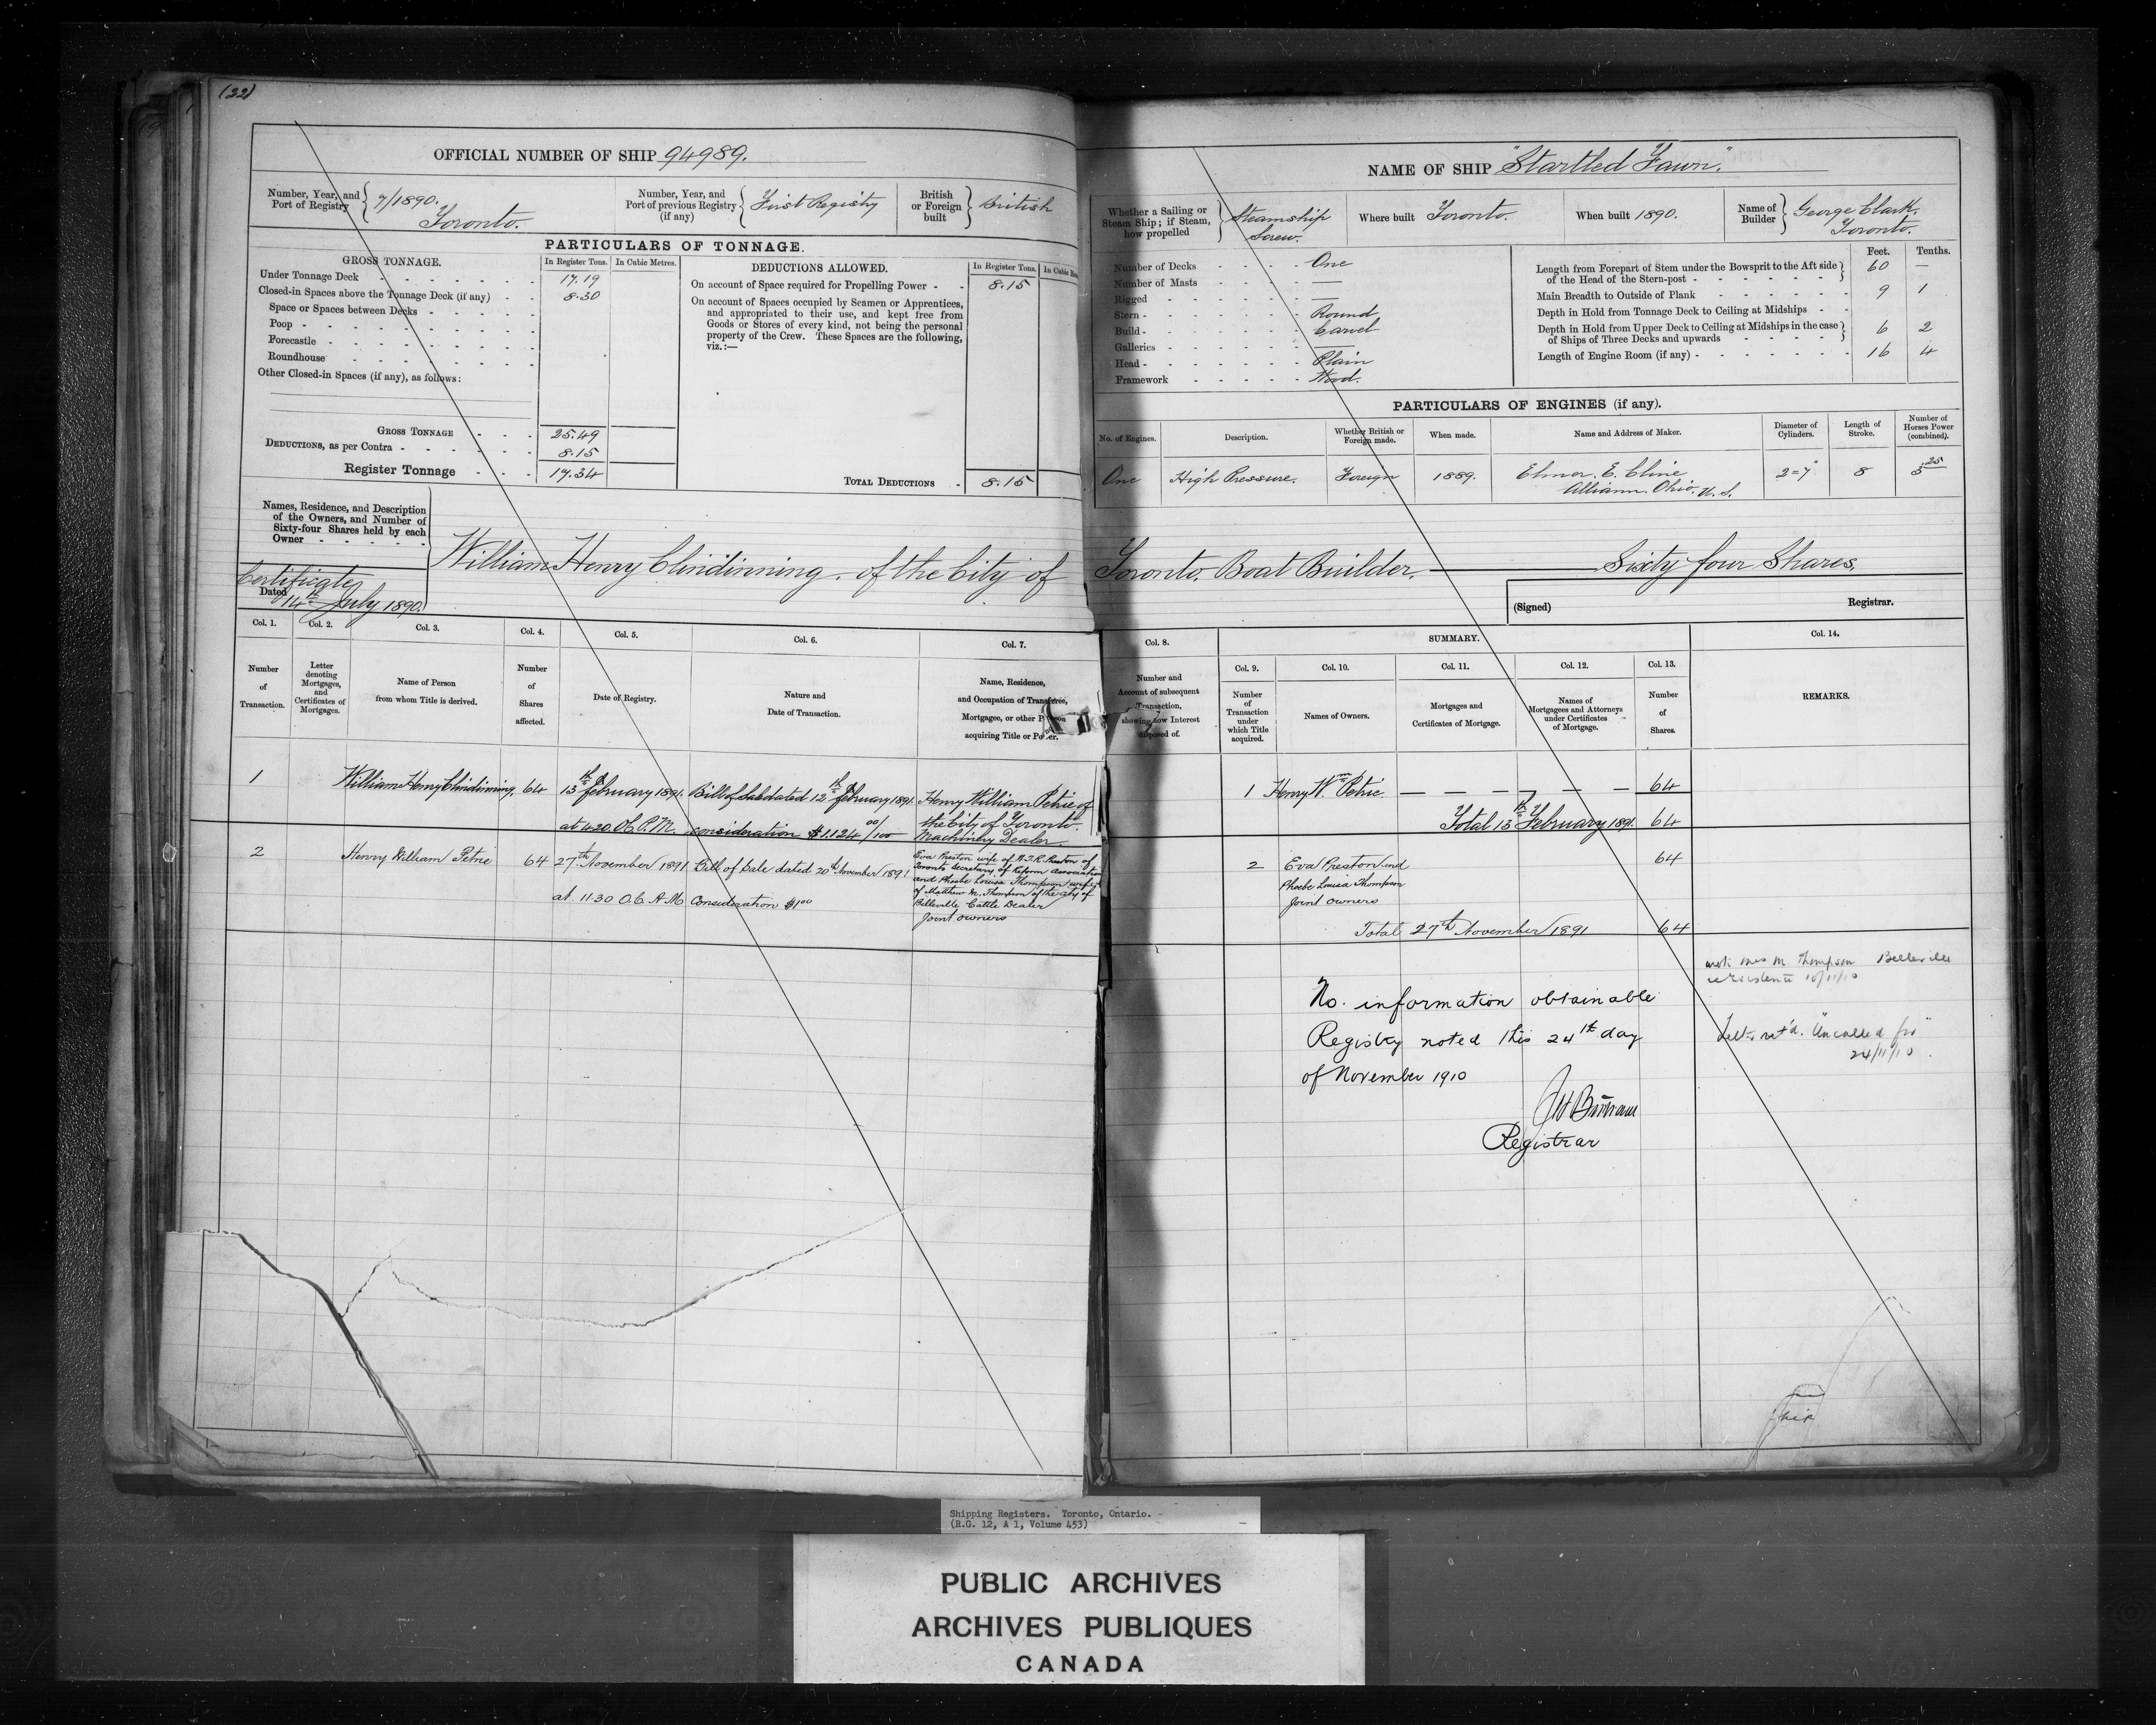 (22)
OFFICIAL NUMBER OF SHIP 94989.
Number, Year, and Port of Registry } 7/1890. Toronto.
Number, Year, and Port of previous Registry (if any) } First Registry
British or Foreign built } British
PARTICULARS OF TONNAGE.
GROSS TONNAGE. In Register Tons. In Cubic Metres.
Under Tonnage Deck 17.19
Closed-in Spaces above the Tonnage Deck (if any) 8.30
Space or Spaces between Decks
Poop
Forecastle
Roundhouse
Other Closed-in Spaces (if any), as follows:
GROSS TONNAGE 25.49
DEDUCTIONS, as per Contra 8.15
Register Tonnage 17.34
DEDUCTIONS ALLOWED. In Register Tons. In Cubic
On account of Space required for Propelling Power 8.15
On account of Spaces occupied by Seamen or Apprentices,
and appropriated to their use, and kept free from
Goods or Stores of every kind, not being the personal
property of the Crew. These Spaces are the following,
viz.:—
TOTAL DEDUCTIONS 8.15
Names, Residence, and Description
of the Owners, and Number of
Sixty-four Shares held by each
Owner
Certificate
Dated 14th July 1890.
William Henry Clindinning. of the City of
Col. 1. Col. 2. Col. 3. Col. 4. Col. 5. Col. 6. Col. 7.
Number of Transaction.
Letter denoting Mortgages, and Certificates of Mortgages.
Name of Person from whom Title is derived.
Number of Shares affected.
Date of Registry.
Nature and Date of Transaction.
Name, Residence, and Occupation of Transferee, Mortgagee, or other Person acquiring Title or Power.
1 William Henry Clindinning. 64 13th February 1891. Bill of Sale dated 12th February 1891. Henry William Petrie of
at 4.20 O.C. P.M. consideration $1,124 00/100 the City of Toronto.
Machinery Dealer.
2 Henry William Petrie 64 27th November 1891 Bill of Sale dated 20th November 1891
at 11.30 O.C. A.M. Consideration $1.00
Eva Preston wife of W.T.R. Preston of
Toronto Secretary of Reform Association
and Phoebe Louisa Thompson wife
of Matthew M. Thompson of the City of
Belleville Cattle Dealer
Joint owners
NAME OF SHIP "Startled Fawn".
Whether a Sailing or Steam Ship; if Steam, how propelled } Steamship Screw.
Where built Toronto.
When built 1890.
Name of Builder } George Clark. Toronto.
Number of Decks One
Number of Masts —
Rigged —
Stern Round
Build Carvel
Galleries —
Head Plain
Framework Wood.
Feet. Tenths.
Length from Forepart of Stem under the Bowsprit to the Aft side of the Head of the Stern-post 60 —
Main Breadth to Outside of Plank 9 1
Depth in Hold from Tonnage Deck to Ceiling at Midships
Depth in Hold from Upper Deck to Ceiling at Midships in the case of Ships of Three Decks and upwards 6 2
Length of Engine Room (if any) 16 4
PARTICULARS OF ENGINES (if any).
No. of Engines. Description. Whether British or Foreign made. When made. Name and Address of Maker. Diameter of Cylinders. Length of Stroke. Number of Horses Power (combined).
One High Pressure. Foreign 1889. Elmer E. Cline 2=7" 8 5 25
Ohio. U.S.
Toronto. Boat Builder. Sixty four Shares.
(Signed) Registrar.
Col. 8. SUMMARY. Col. 14.
Col. 9. Col. 10. Col. 11. Col. 12. Col. 13.
Number and Account of subsequent Transaction, showing how Interest disposed of.
Number of Transaction under which Title acquired.
Names of Owners.
Mortgages and Certificates of Mortgage.
Names of Mortgagees and Attorneys under Certificates of Mortgage.
Number of Shares.
REMARKS.
1 Henry Wm Petrie. — — — — — — 64
Total 13th February 1891. 64
2 Eva Preston and 64
Phoebe Louisa Thompson
Joint owners
Total 27th November 1891 64
M. Thompson Belleville
10/11/10
No. information obtainable
Registry noted this 24th day
of November 1910
Registrar
ret'd. "Uncalled for"
24/11/10.
Shipping Registers. Toronto, Ontario.
(R.G. 12, A 1, Volume 453)
PUBLIC ARCHIVES
ARCHIVES PUBLIQUES
CANADA